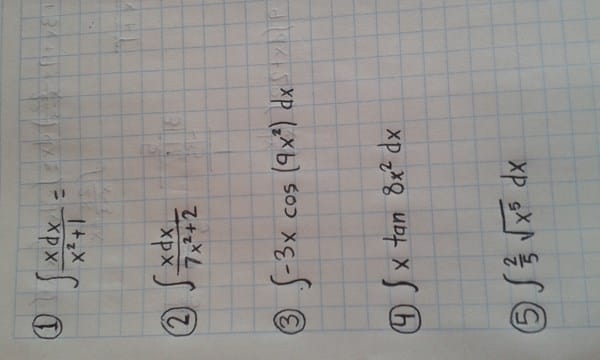 ① ∫ x dx / x² + 1 =
② ∫ x dx / 7x² + 2
③ ∫ -3x cos (9x²) dx
④ ∫ x tan 8x² dx
⑤ ∫ 2/5 √x⁵ dx